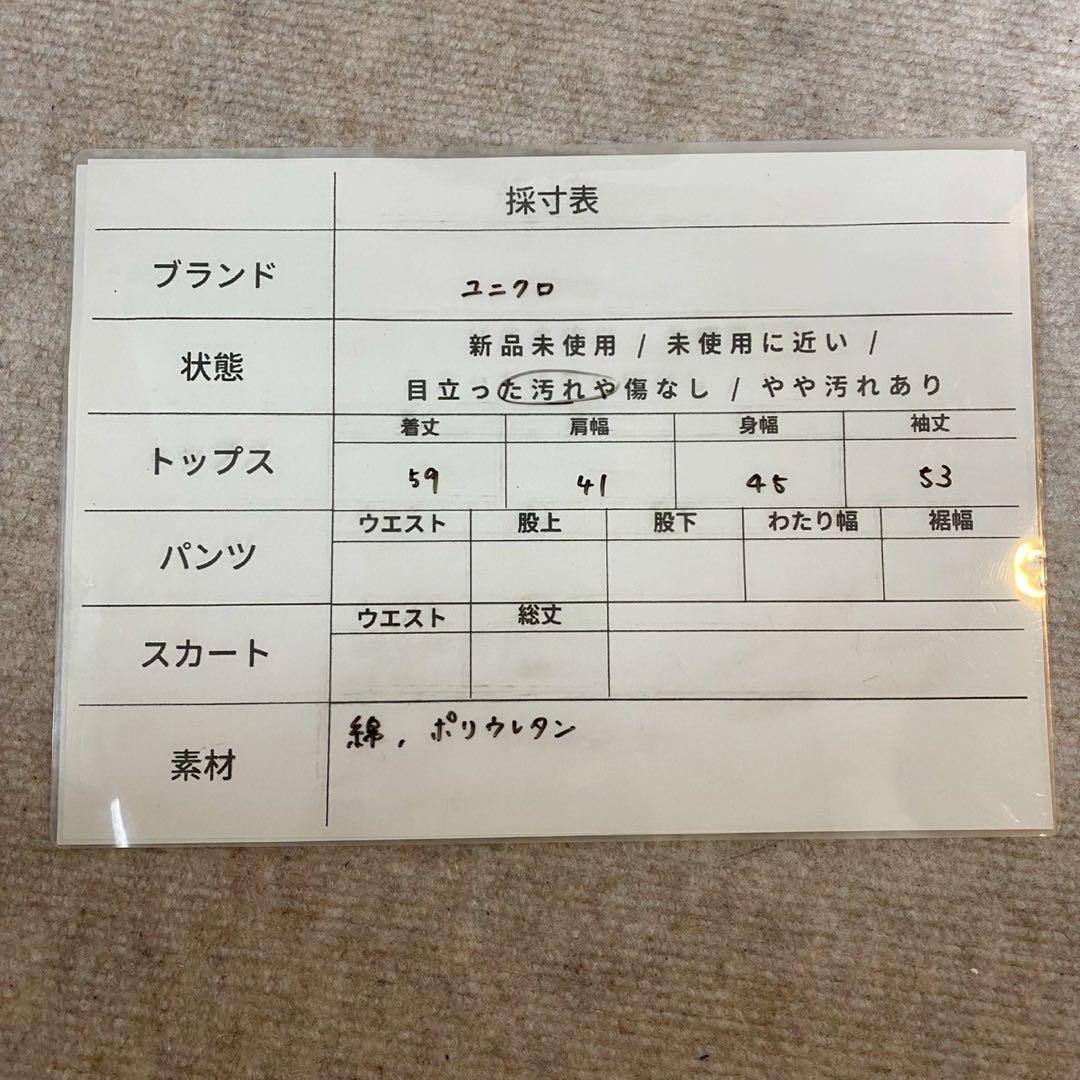 採寸表
ブランド ユニクロ
状態 新品未使用 / 未使用に近い /
目立った汚れや傷なし / やや汚れあり
トップス 着丈 肩幅 身幅 袖丈
59 41 45 53
パンツ ウエスト 股上 股下 わたり幅 裾幅
スカート ウエスト 総丈
素材 綿, ポリウレタン